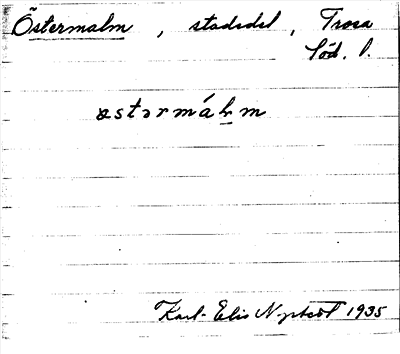 Östermalm, stadsdel, Trosa
Söd. l.
østərmálm
Karl-Elis 1935